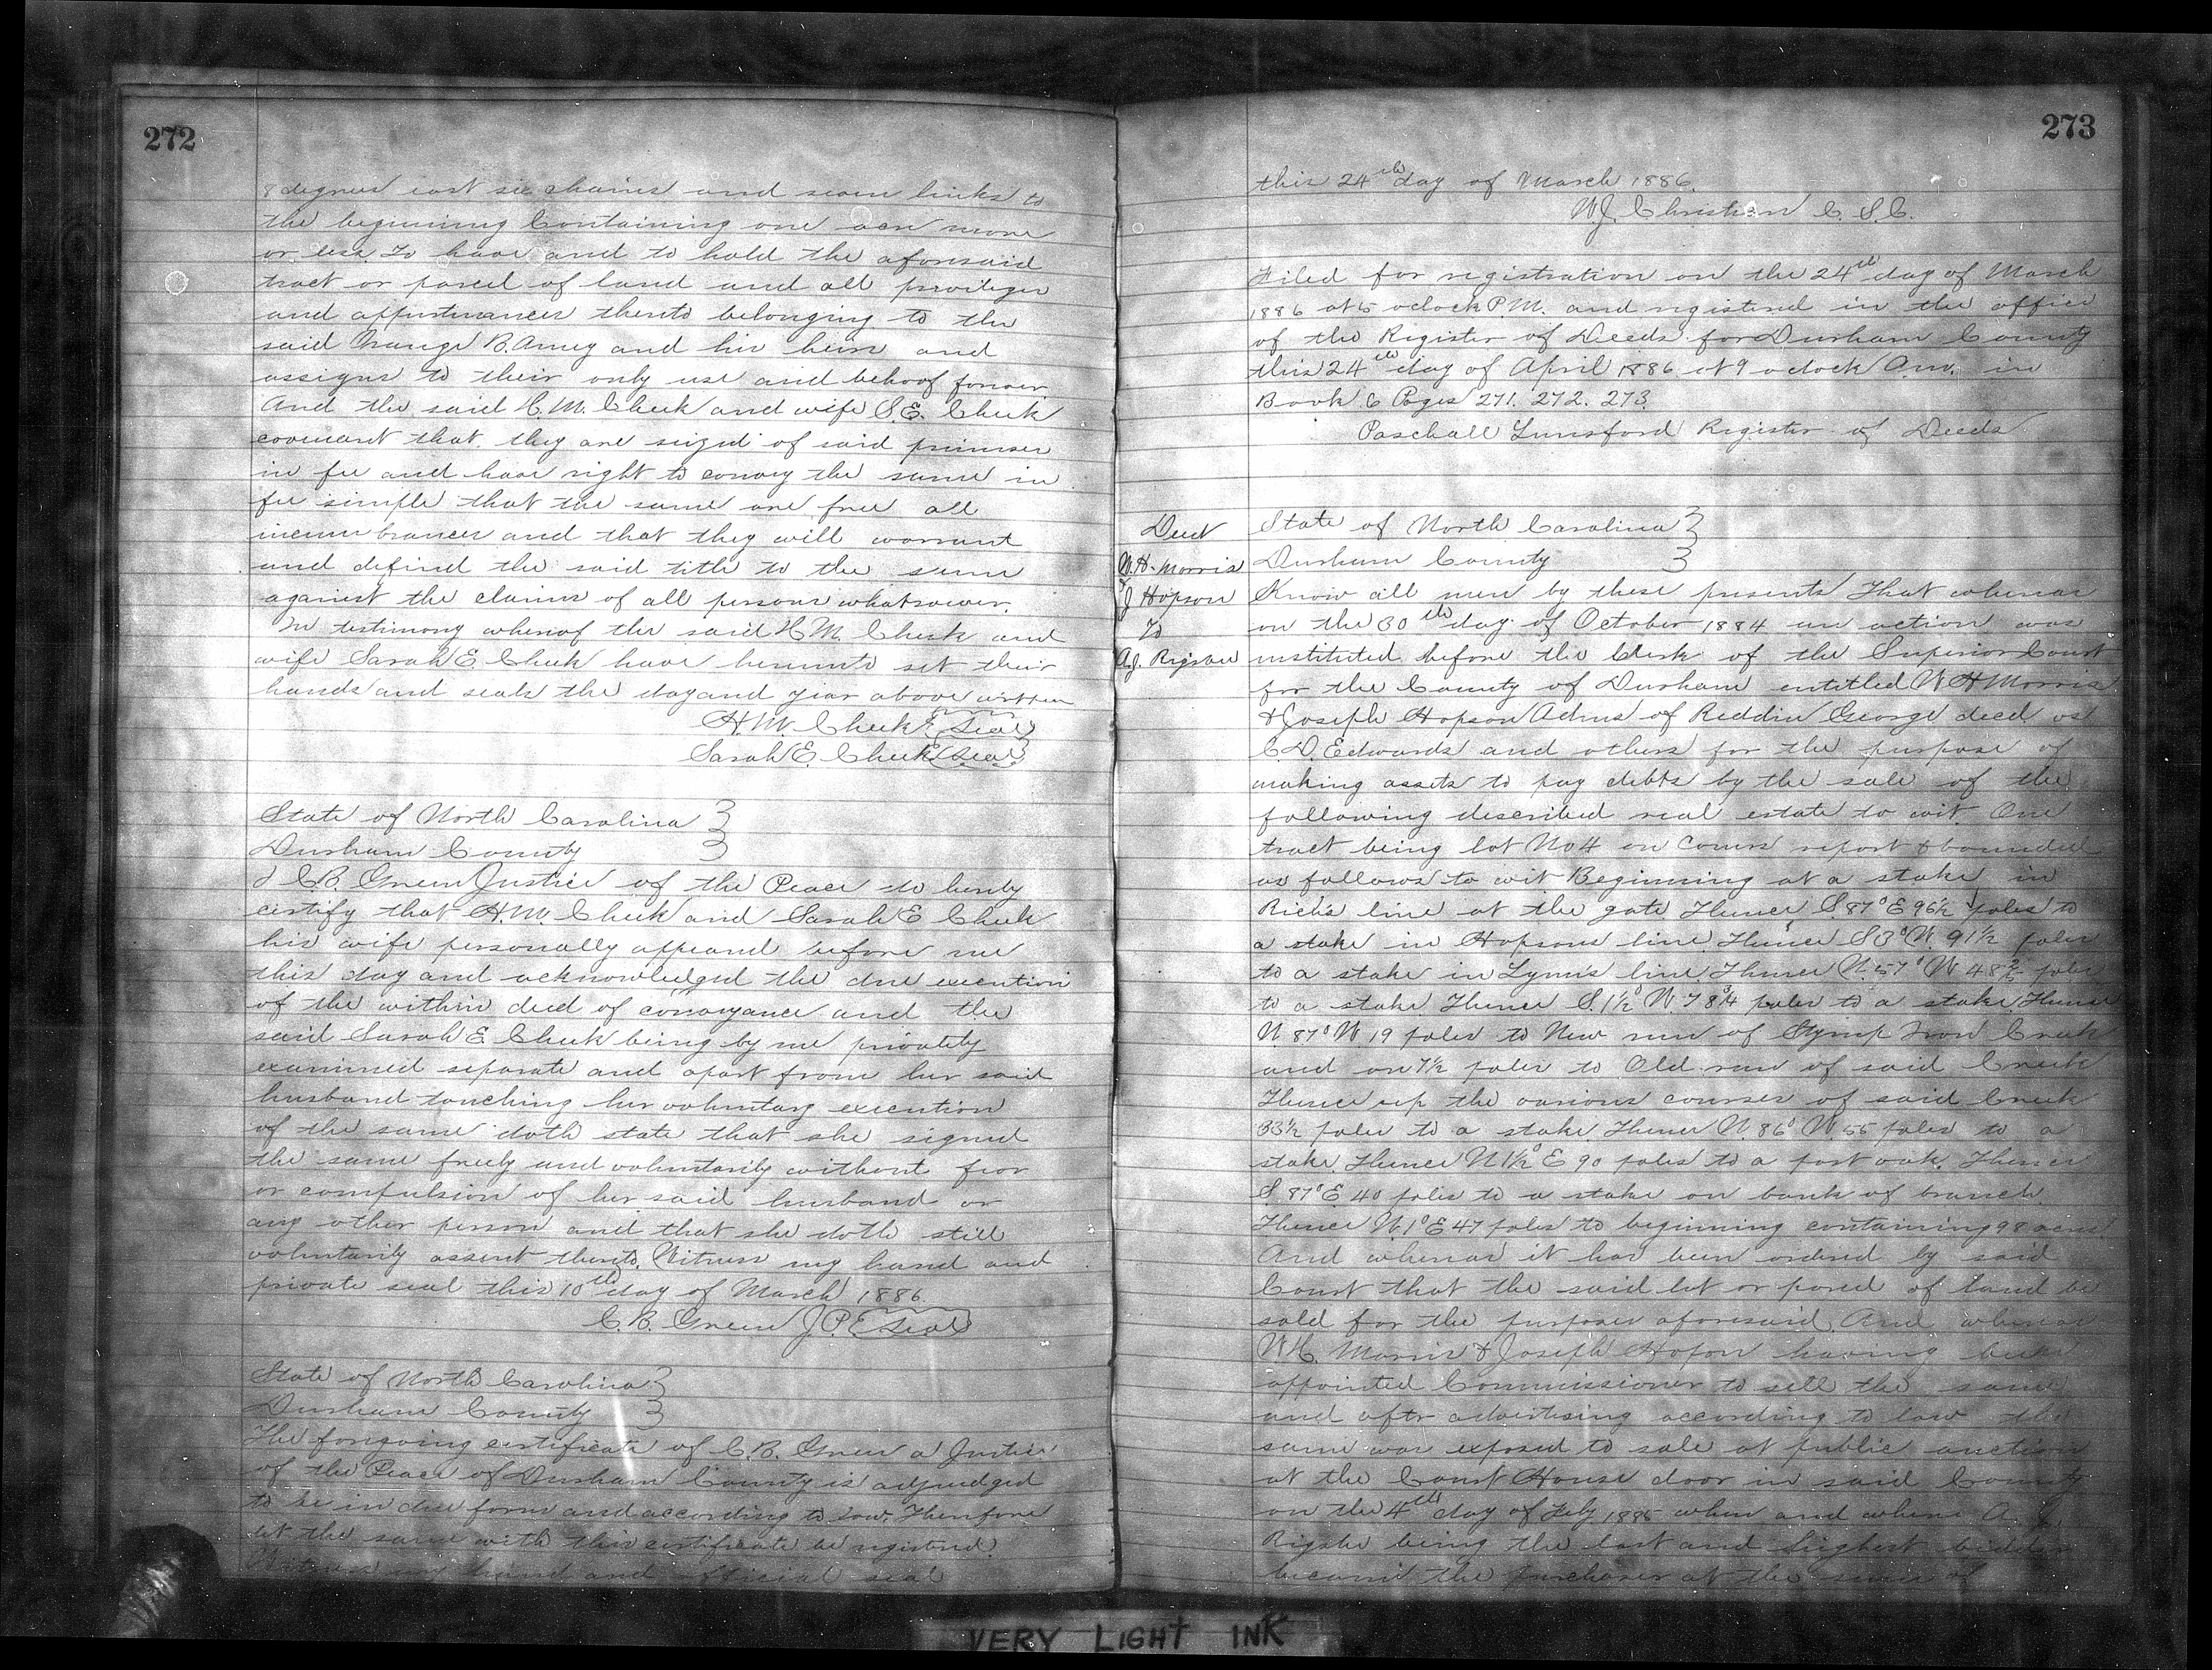 272
8 degrees east six chains and seven links to
the beginning Containing one acre more
or less. To have and to hold the aforesaid
tract or parcel of land and all privileges
and appurtenances thereto belonging to the
said Orange B. Amey and his heirs and
assigns to their only use and behoof forever
And the said H. M. Cheek and wife S. E. Cheek
covenant that they are seized of said premises
in fee and have right to convey the same in
fee simple that the same are free all
incumbrances and that they will warrant
and defend the said title to the same
against the claims of all persons whatsoever.
In testimony whereof the said H. M. Cheek and
wife Sarah E Cheek have hereunto set their
hands and seals the day and year above written
H. M. Cheek (Seal)
Sarah E. Cheek (Seal)
State of North Carolina }
Durham County }
I C. B. Green Justice of the Peace do hereby
certify that H. M. Cheek and Sarah E Cheek
his wife personally appeared before me
this day and acknowledged the due execution
of the within deed of conveyance and the
said Sarah E. Cheek being by me privately
examined separate and apart from her said
husband touching her voluntary execution
of the same doth state that she signed
the same freely and voluntarily without fear
or compulsion of her said husband or
any other person and that she doth still
voluntarily assent thereto. Witness my hand and
private seal this 10th day of March 1886.
C. B. Green J.P. (Seal)
State of North Carolina }
Durham County }
The foregoing certificate of C. B. Green a Justice
of the Peace of Durham County is adjudged
to be in due form and according to law. Therefore
let the same with this certificate be registered.
Witness my hand and official seal
273
this 24th day of March 1886.
W. J. Christian C. S. C.
Filed for registration on the 24th day of March
1886 at 5 oclock P.M. and registered in the office
of the Register of Deeds for Durham County
this 24th day of April 1886 at 9 oclock Am. in
Book 6 Pages 271. 272. 273.
Paschall Lunsford Register of Deeds
Deed
W. H. Morris
& J Hopson
To
A. J. Rigsbee
State of North Carolina }
Durham County }
Know all men by these presents That whereas
on the 30th day of October 1884 an action was
instituted before the Clerk of the Superior Court
for the County of Durham entitled W H Morris
& Joseph Hopson Admrs of Reddin George decd vs
C. D. Edwards and others for the purpose of
making assets to pay debts by the sale of the
following described real estate to wit One
tract being lot No 4 on Comrs report & bounded
as follows to wit Beginning at a stake in
Rich's line at the gate Thence S 87° E 96½ poles to
a stake in Hopsons line Thence S 3° W. 91½ poles
to a stake in Lynn's line Thence N. 57° W 48 poles
to a stake Thence S. 1½° W. 78¾ poles to a stake Thence
N. 87° W. 19 poles to New run of Stirrup Iron Creek
and on 7½ poles to Old run of said Creek
Thence up the various courses of said Creek
33½ poles to a stake Thence N. 86° W 55 poles to a
stake Thence N 1½° E 90 poles to a post oak. Thence
S. 87° E 40 poles to a stake on bank of branch
Thence N. 1° E 47 poles to beginning containing 98 acres
And whereas it has been ordered by said
Court that the said lot or parcel of land be
sold for the purposes aforesaid And whereas
W. H. Morris & Joseph Hopson having been
appointed Commissioner to sell the same
and aftr advertising according to law the
same was exposed to sale at public auction
at the Court House door in said County
on the 4th day of July 1885 when and where A. J.
Rigsbe being the last and highest bidder
became the purchaser at the sum of
VERY LIGHT INK